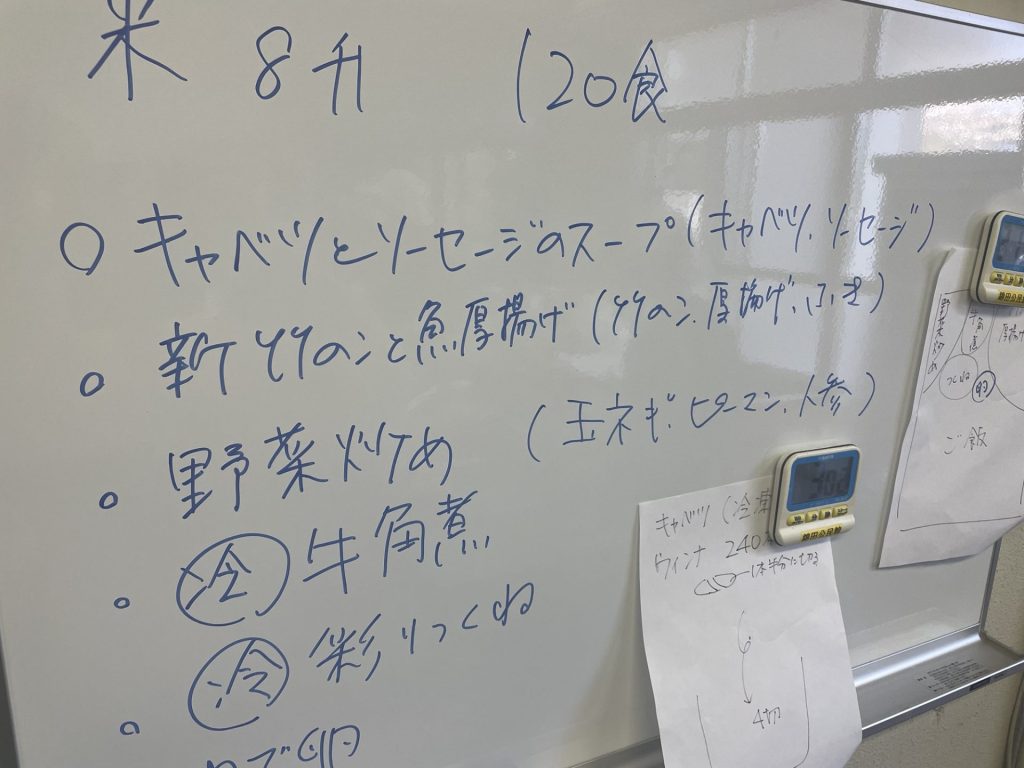 米 8升 120食
○ キャベツとソーセージのスープ(キャベツ、ソーセージ)
○ 新竹のンと魚厚揚げ(竹のン、厚揚げ、ふき)
○ 野菜炒め (玉ネギ、ピーマン、人参)
○ ㊀冷 牛角煮
○ 冷 彩りつくね
○ ゆで卵
キャベツ(冷凍
ウィンナ 240
1本半分に切る
6
4切
野菜炒め
牛角煮
厚揚げ
つくね
卵
ご飯